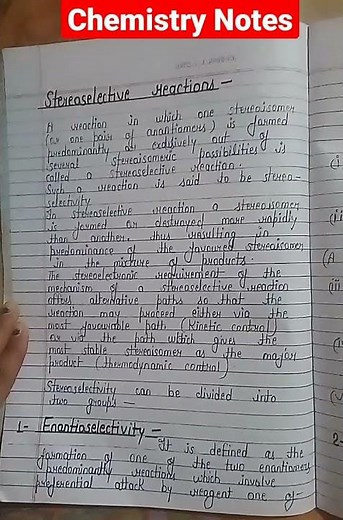 Chemistry Notes
Stereoselective reactions -
A reaction in which one stereoisomer
(or one pair of enantiomers) is formed
predominantly or exclusively out of
several stereoisomeric possibilities is
called a stereoselective reaction.
Such a reaction is said to be stereo-
selectivity.
In stereoselective reaction a stereoisomer
is formed or destroyed more rapidly
than another, thus resulting in
predominance of the favoured stereoisomer
in the mixture of products.
The stereoelectronic requirement of the
mechanism of a stereoselective reaction
offers alternative paths so that the
reaction may proceed either via the
most favourable path (Kinetic control)
or via the path which gives the
most stable stereoisomer as the major
product (thermodynamic control)
Stereoselectivity can be divided into
two group's -
1- Enantioselectivity - It is defined as the
formation of one of the two enantiomers
predominantly reactions which involve
preferential attack by reagent one of-
(i
(ii
(A
(ii
2-